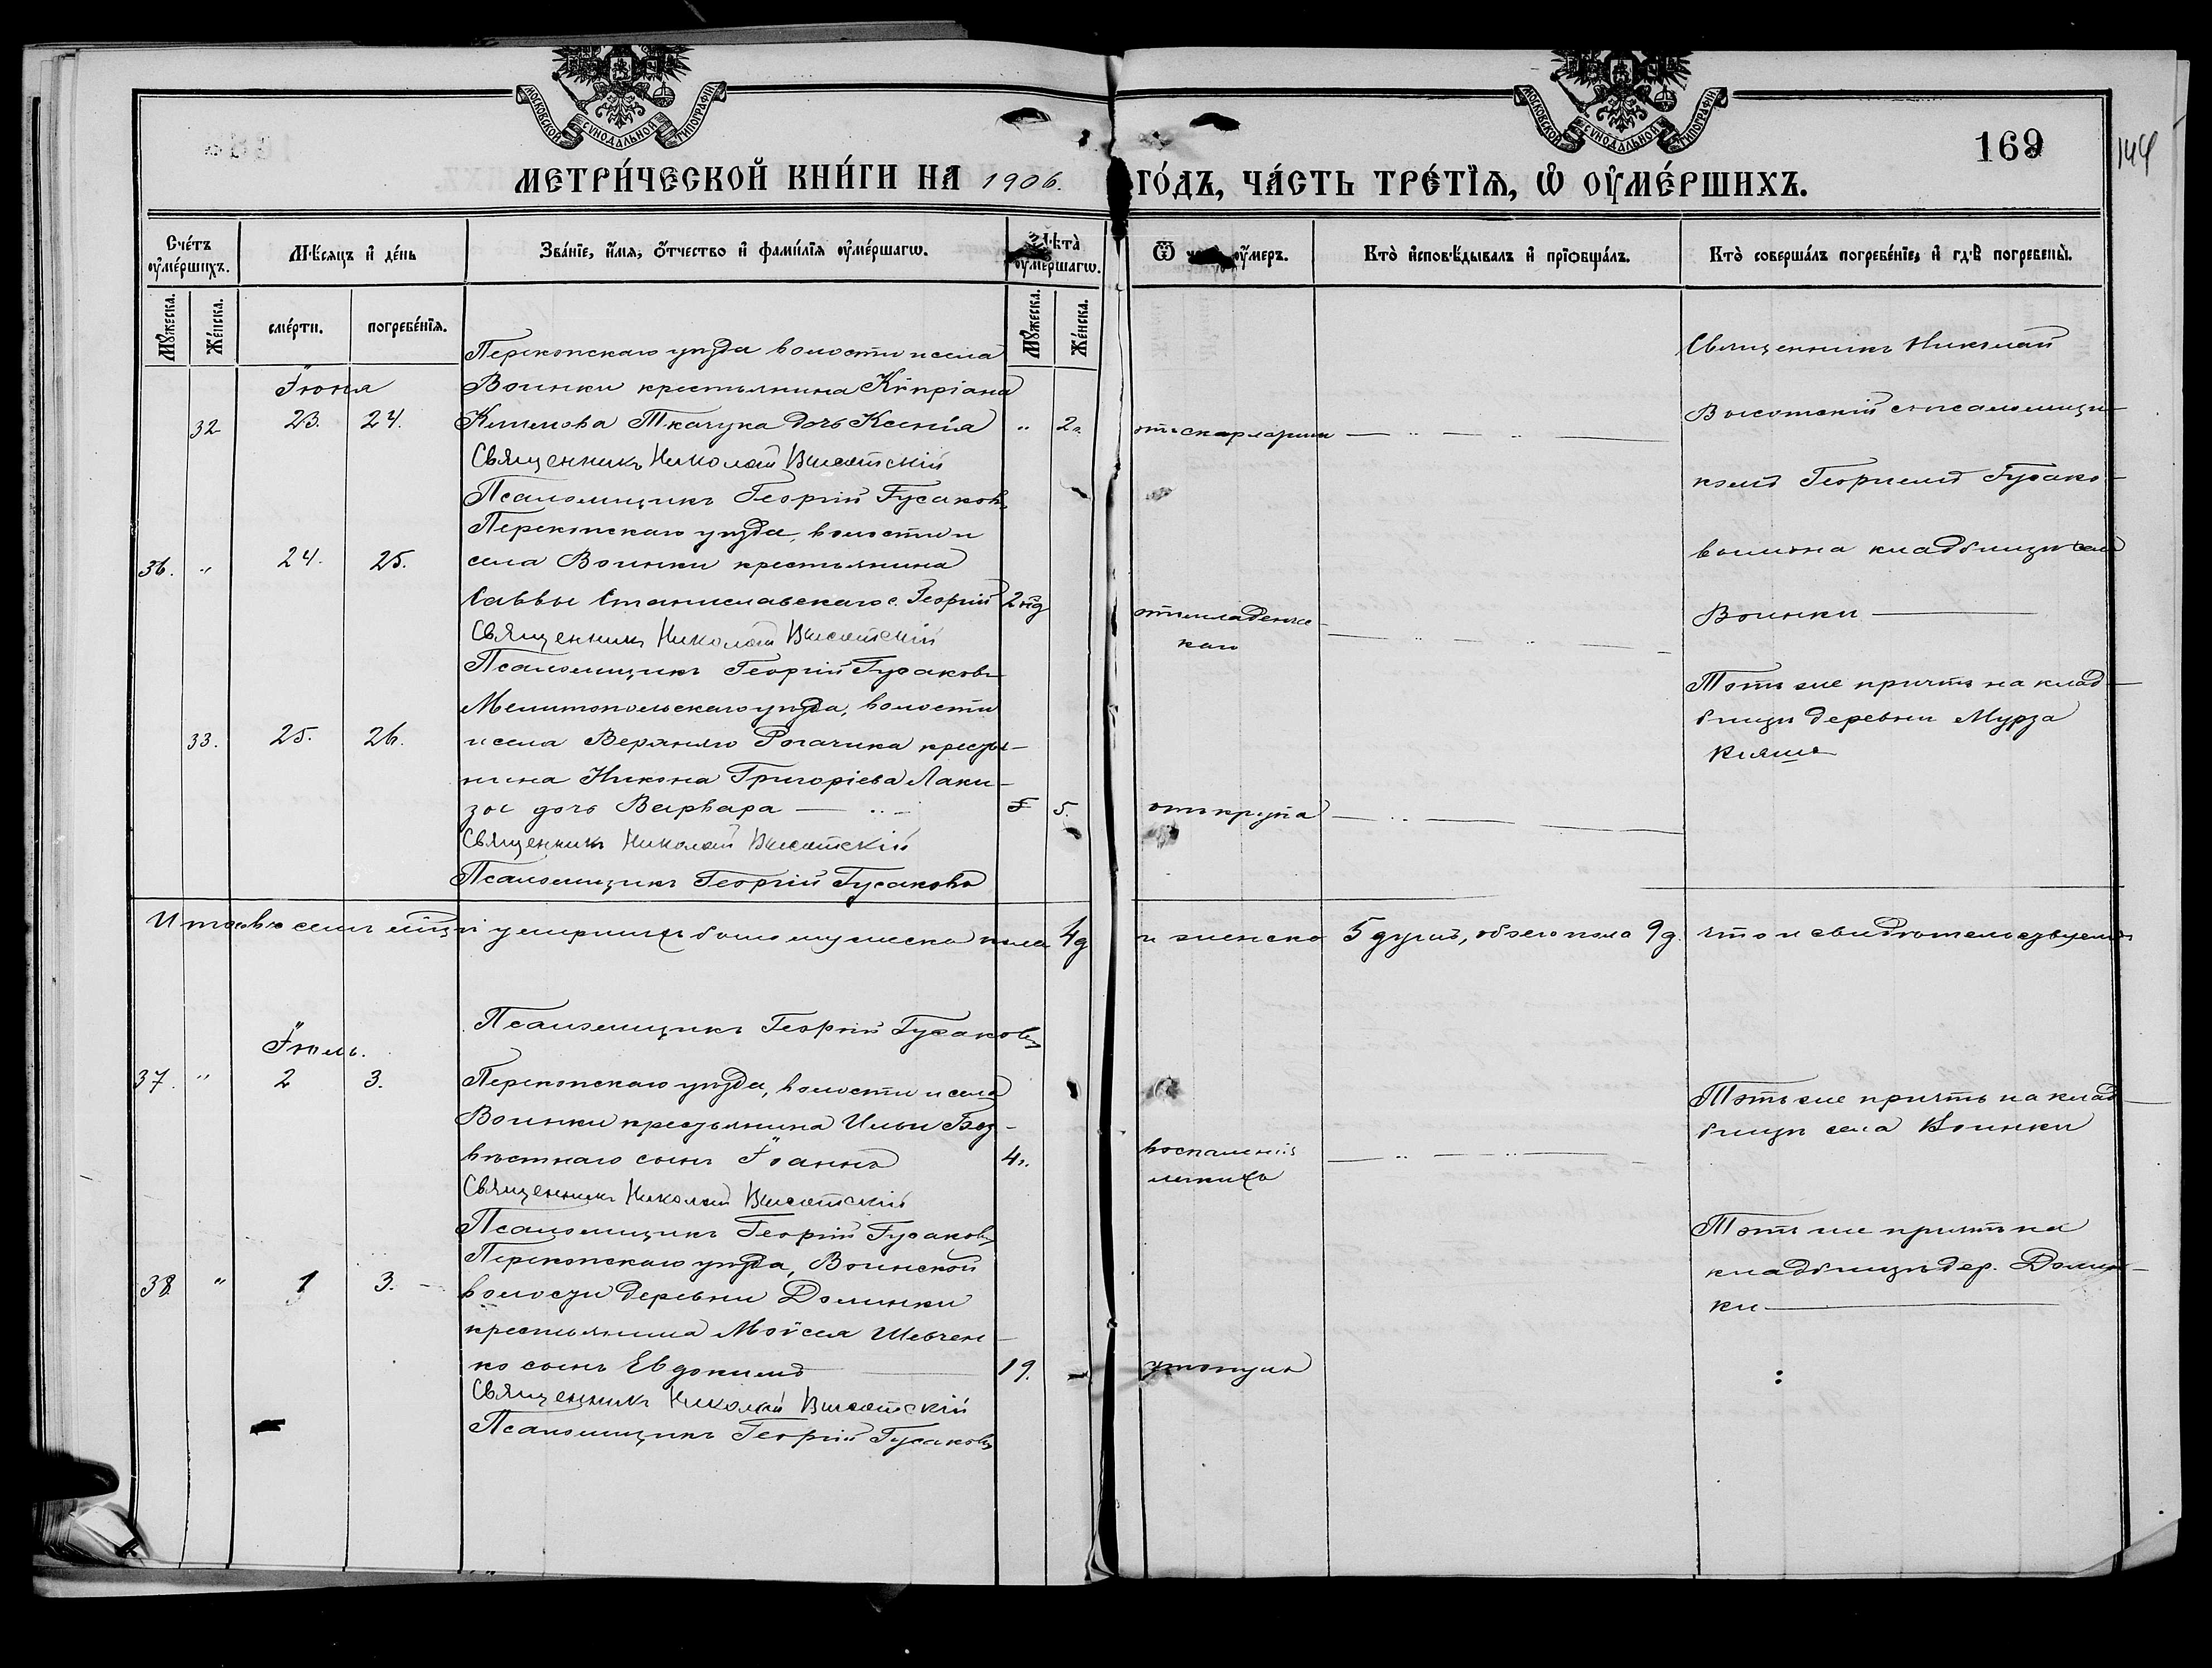 МОСКОВСКОЙ СУНОДАЛЬНОЙ ТИПОГРАФІИ
МОСКОВСКОЙ СУНОДАЛЬНОЙ ТИПОГРАФІИ
169
144
МЕТРИ́ЧЕСКОЙ КНИ́ГИ НА 1906. ГО́ДЪ, ЧА́СТЬ ТРЕ́ТЇѦ, Ѡ҆ ОУ҆МЕ́РШИХЪ.
Сче́тъ оу҆ме́ршихъ.
Мѣ́сяцъ и҆ де́нь
Зва́нїе, и҆́мѧ, ѻ҆́тчество и҆ фами́лїѧ оу҆ме́ршагѡ.
Лѣ́та оу҆ме́ршагѡ.
Ѿ оу҆́меръ.
Кто̀ и҆сповѣ́дывалъ и҆ прїѻбща́лъ.
Кто̀ соверша́лъ погребе́нїе, и҆ гдѣ̀ погребены̀.
Мꙋ́жеска.
Же́нска.
сме́рти.
погребе́нїѧ.
Мꙋ́жеска.
Же́нска.
Перекопскаго уѣзда волости и села
Іюня
Воинки крестьянина Кипріана
32 23. 24. Ткачука дочь Ксенія " 2г. отъ скарлатины
Священникъ Николай Высотскій
Псаломщикъ Георгій Гусаковъ
Священникъ Николай
Высотскій съ псаломщи-
комъ Георгіемъ Гусако-
вымъ на кладбищѣ села
Воинки
Перекопскаго уѣзда, волости и
36. " 24. 25. села Воинки крестьянина
Саввы Станиславскаго с. Георгій 2 нд отъ младенчес
каго
Священникъ Николай Высотскій
Псаломщикъ Георгій Гусаковъ
Мелитопольскаго уѣзда, волости
33. 25. 26. и села Верхняго Рогачика крестья-
нина Никона Григоріева Лаки-
зы дочь Варвара 5 5. отъ крупа
Священникъ Николай Высотскій
Псаломщикъ Георгій Гусаковъ
Тотъ же причтъ на клад-
бищѣ деревни Мурза
Кояшъ
Итого въ семъ мѣсяцѣ умершихъ было мужеска пола 4 д и женска 5 душъ, обоего пола 9 д. что и свидѣтельствуемъ
Псаломщикъ Георгій Гусаковъ
Іюль.
37. " 2 3. Перекопскаго уѣзда, волости и села
Воинки крестьянина Ильи Без-
вѣстнаго сынъ Іоаннъ 4г. воспаленія
легкихъ
Священникъ Николай Высотскій
Псаломщикъ Георгій Гусаковъ
Тотъ же причтъ на клад-
бищѣ села Воинки
Перекопскаго уѣзда, Воинской
38 " 1 3. волости деревни Долинки
крестьянина Моисея Шевчен-
ко сынъ Евдокимъ 19. утонулъ
Священникъ Николай Высотскій
Псаломщикъ Георгій Гусаковъ
Тотъ же причтъ на
кладбищѣ дер. Долин-
ки